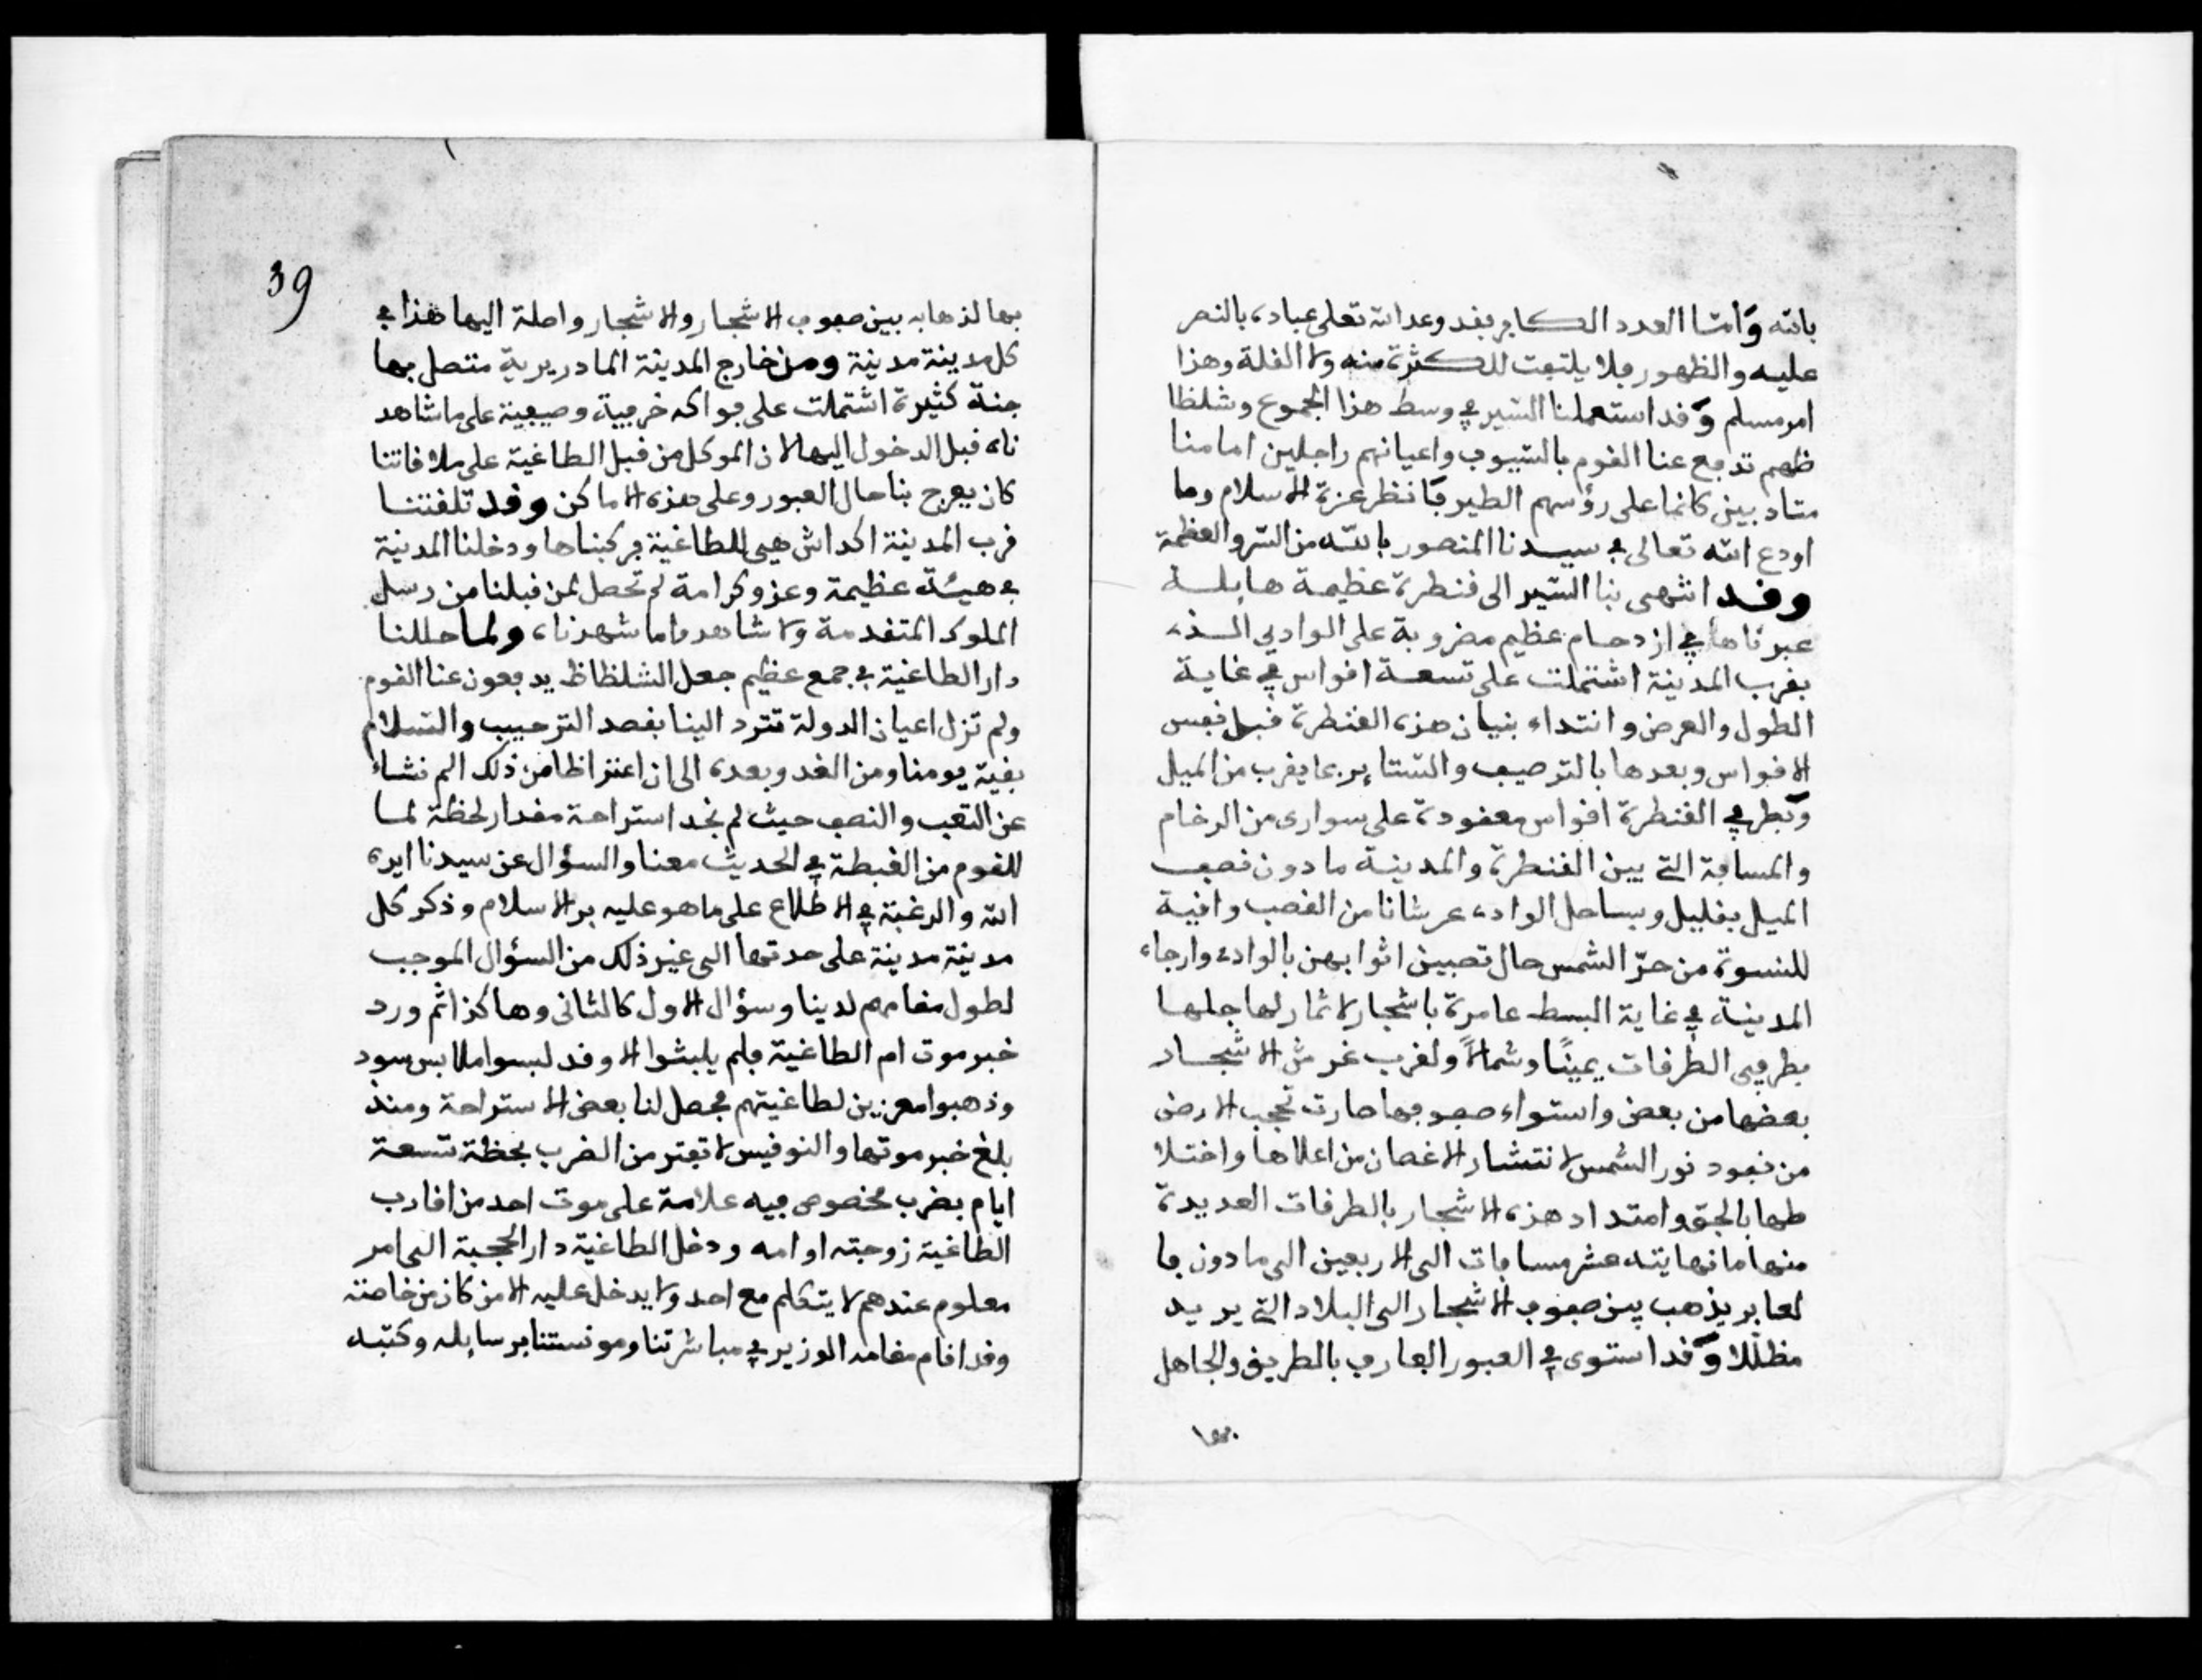 بالله وأما العدد الكافر فقد وعد الله تعلى عباده بالنصر
عليه والظهور فلا يلتفت للكثرة منه ولا القلة وهذا
امر مسلم وقد استعملنا السير في وسط هذا الجموع وشلظاظ
ظهم تدفع عنا القوم بالسيوف واعيانهم راجلين امامنا
متادبين كانما على رؤسهم الطير فانظر عزة الاسلام وما
اودع الله تعالى في سيدنا المنصور بالله من السر والعظمة
وقد انتهى بنا السير الى قنطرة عظيمة هايلة
عبرناها في ازدحام عظيم مضروبة على الوادي الذي
بقرب المدينة اشتملت على تسعة اقواس في غاية
الطول والعرض وانتداء بنيان هذه القنطرة قبل نفس
الاقواس وبعدها بالترصيف والستاير بما يقرب من الميل
وبطرفي القنطرة اقواس معقودة على سوارى من الرخام
والمسافة التي بين القنطرة والمدينة ما دون نصف
الميل بقليل وبساحل الوادي عرشانا من القصب واقية
للنسوة من حر الشمس حال تصبين اثوابهن بالوادي وارجاء
المدينة في غاية البسط عامرة باشجار لا ثمار لها جلها
بطرفي الطرقات يمينًا وشمالاً ولقرب غرش الاشجار
بعضها من بعض واستواء صفوفها صارت تحجب الارض
من نفود نور الشمس لانتشار الاغصان من اعلاها واختلا
طها بالجو وامتداد هذه الاشجار بالطرقات العديدة
منها ما نهايته عشر مسافات الى الاربعين الى ما دون فا
لعابر يذهب بين صفوف الاشجار الى البلاد التي يريد
مظللا وقد استوى في العبور العارف بالطريق والجاهل
بها
39
بها لذهابه بين صفوف الاشجار والاشجار واصلة اليها هذا في
كل مدينة مدينة ومن خارج المدينة المادريرية متصل بها
جنة كثيرة اشتملت على فواكه خرفية وصيفية على ما شاهد
ناه قبل الدخول اليها لان الموكل من قبل الطاغية على ملاقاتنا
كان يعرج بنا حال العبور وعلى هذه الاماكن وقد تلقتنا
قرب المدينة اكداش هي للطاغية فركبناها ودخلنا المدينة
في هيئة عظيمة وعز وكرامة لم تحصل لمن قبلنا من رسل
الملوك المتقدمة ولا شاهدوا ما شهدناه ولما حللنا
دار الطاغية في جمع عظيم جعل الشلظاظ يدفعون عنا القوم
ولم تزل اعيان الدولة تترد الينا بقصد الترحيب والسلام
بقية يومنا ومن الغد وبعده الى ان اعترانا من ذلك الم نشاء
عن التعب والنصب حيث لم نجد استراحة مقدار لحظة لما
للقوم من الغبطة في الحديث معنا والسؤال عن سيدنا ايده
الله والرغبة في الاطلاع على ما هو عليه بر الاسلام وذكر كل
مدينة مدينة على حدتها الى غير ذلك من السؤال الموجب
لطول مقامهم لدينا وسؤال الاول كالثانى وهاكذا ثم ورد
خبر موت ام الطاغية فلم يلبثوا الا وقد لبسوا ملابس سود
وذهبوا معزين لطاغيتهم فحصل لنا بعض الاستراحة ومنذ
بلغ خبر موتها والنوقيس لا تفتر من الضرب لحظة تسعة
ايام بضرب مخصوص فيه علامة على موت احد من اقارب
الطاغية زوجته او امه ودخل الطاغية دار الحجبة الى امر
معلوم عندهم لا يتكلم مع احد ولا يدخل عليه الا من كان من خاصته
وقد اقام مقامه الوزير في مباشرتنا ومونستنا برسايله وكتبه